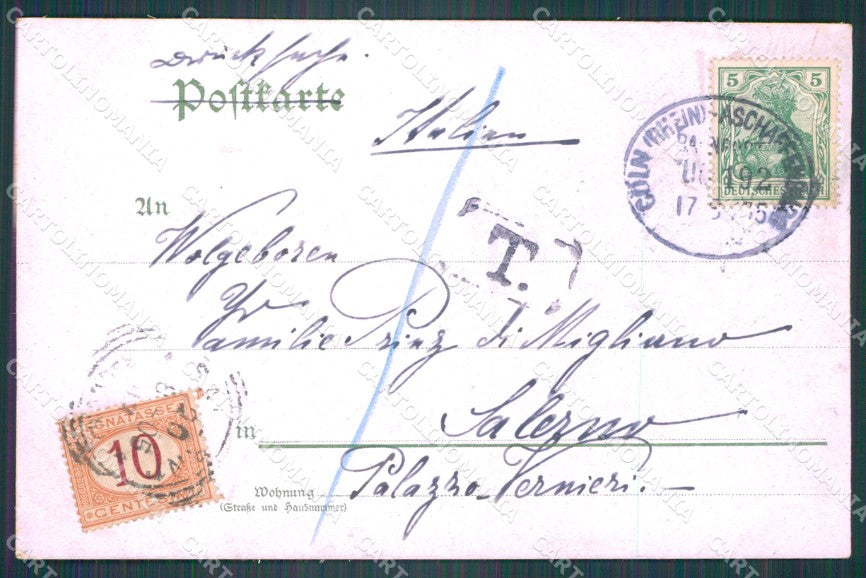 Drucksache.
Postkarte
Italien
5 5
DEUTSCHES
CÖLN (RHEIN)-ASCHAFFENBURG
192
17
An
T.
Wolgeboren
Familie Prinz di Migliano
in Salerno
SEGNATASSE
10
CENT
Wohnung
(Straße und Hausnummer)
Palazzo Vernieri.
CARTOLINOMANIA